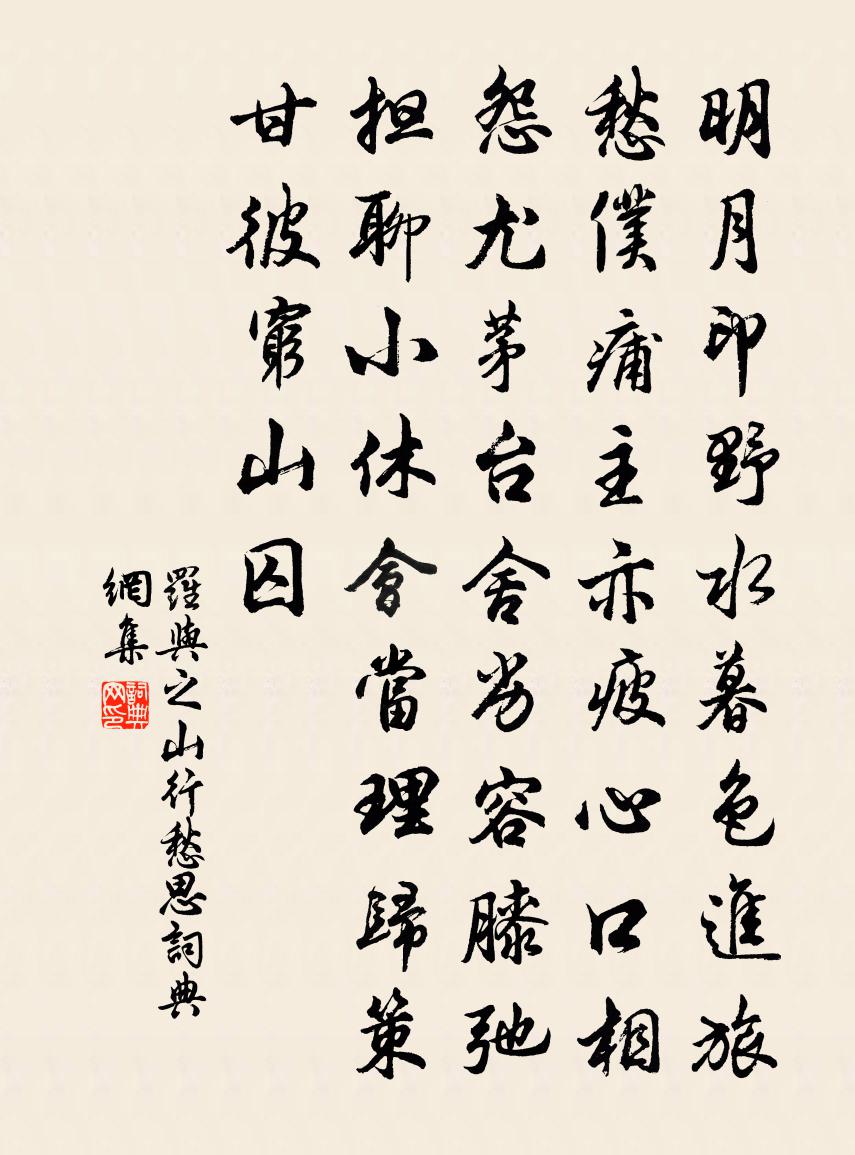 明月印野水暮色進旅
愁僕痡主亦疲心口相
怨尤茅台舍劣容膝弛
担聊小休會當理歸策
甘彼窮山囚
羅與之山行愁思詞典
網集
詞典
网印